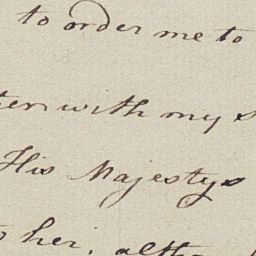 to order me to
with my
His Majestys
her, altho